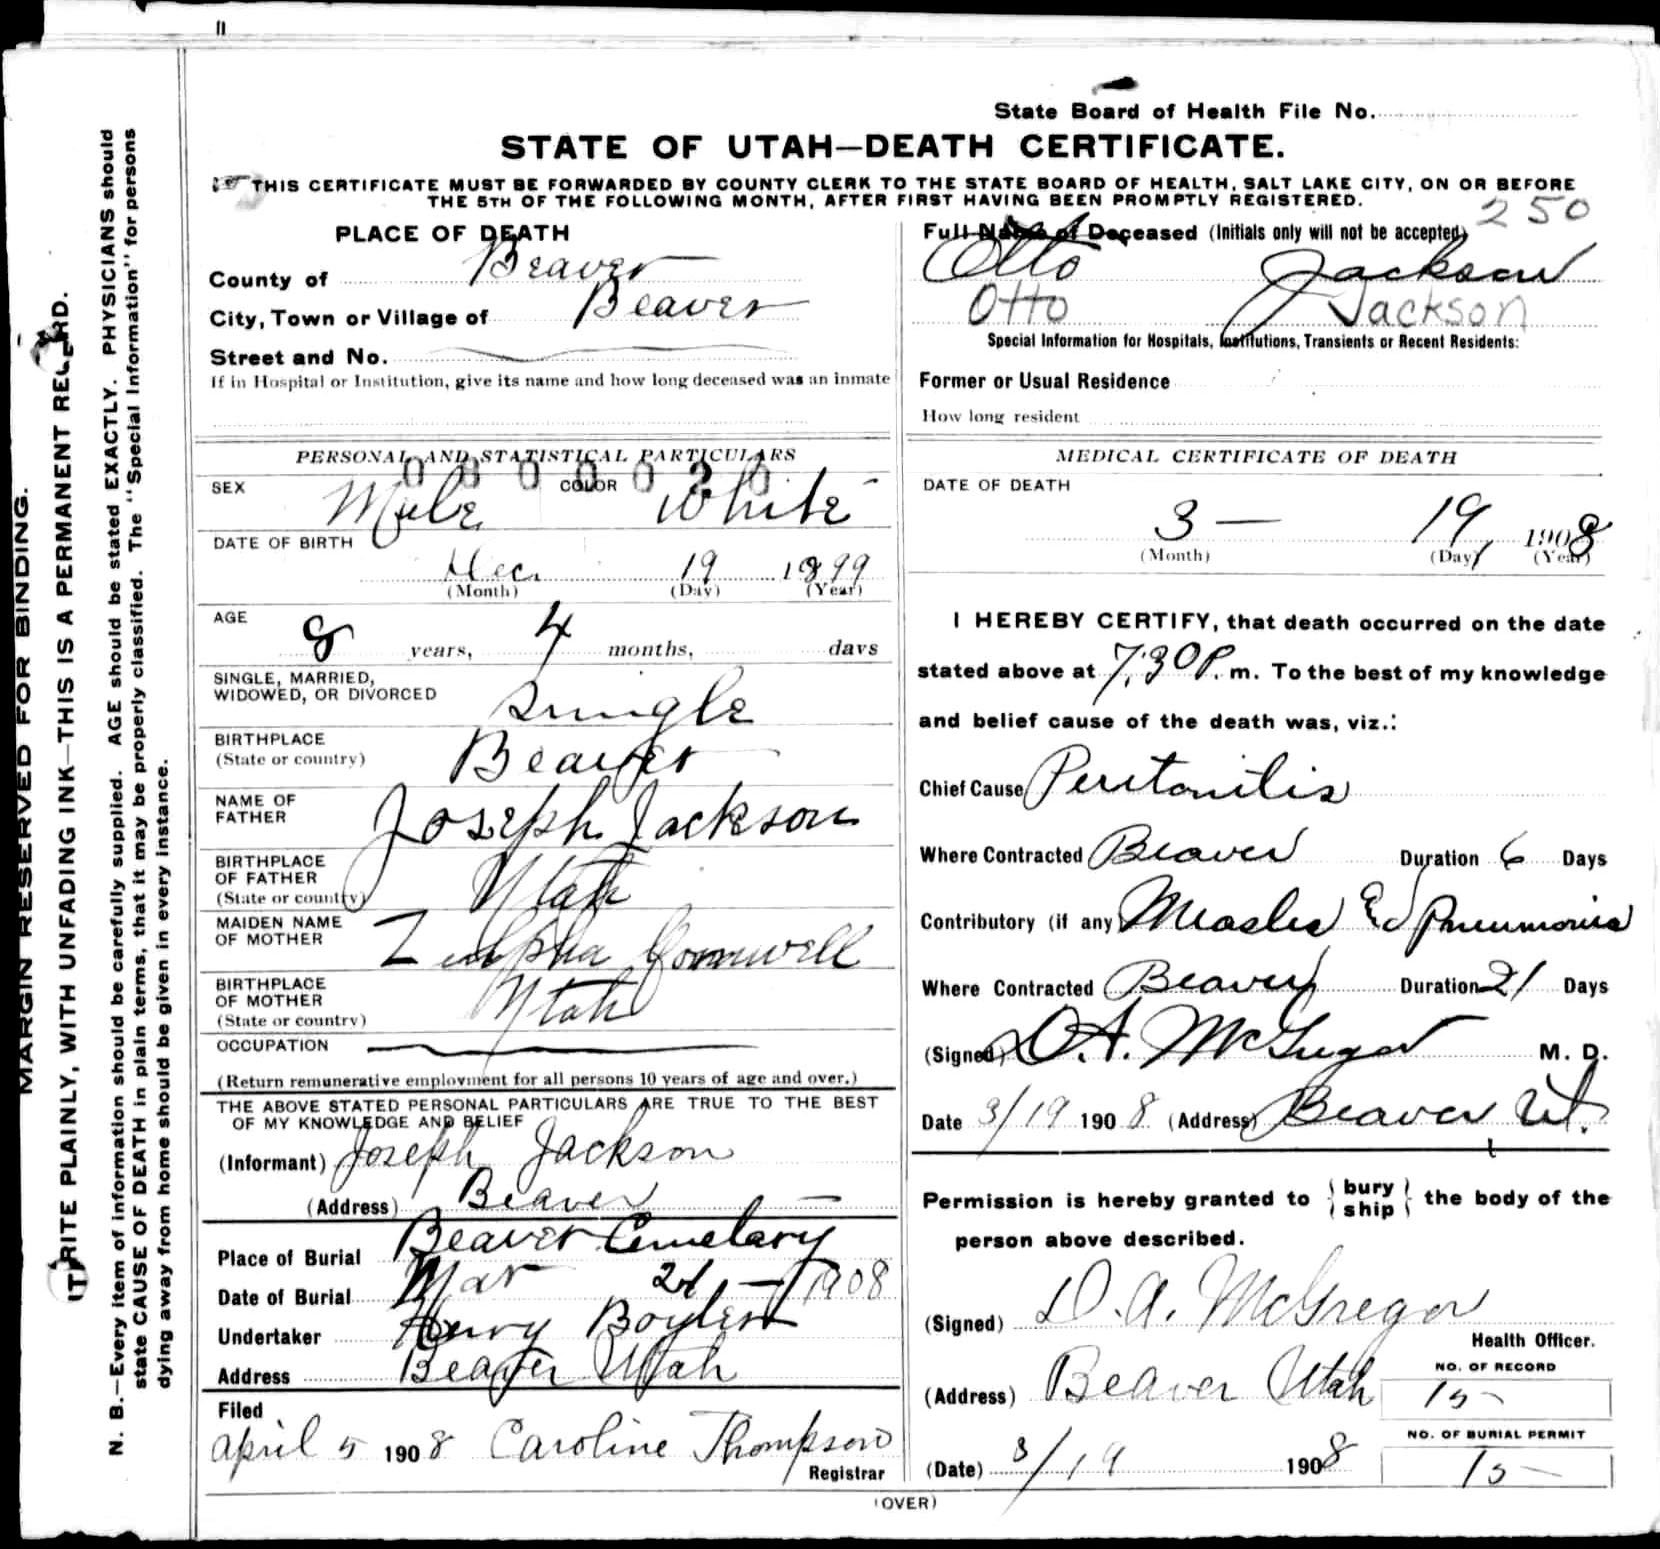 State Board of Health File No.
STATE OF UTAH—DEATH CERTIFICATE.
THIS CERTIFICATE MUST BE FORWARDED BY COUNTY CLERK TO THE STATE BOARD OF HEALTH, SALT LAKE CITY, ON OR BEFORE
THE 5TH OF THE FOLLOWING MONTH, AFTER FIRST HAVING BEEN PROMPTLY REGISTERED.
250
PLACE OF DEATH
County of Beaver
City, Town or Village of Beaver
Street and No.
If in Hospital or Institution, give its name and how long deceased was an inmate
Full Name of Deceased (Initials only will not be accepted)
Otto Jackson
Otto Jackson
Special Information for Hospitals, Institutions, Transients or Recent Residents:
Former or Usual Residence
How long resident
PERSONAL AND STATISTICAL PARTICULARS
SEX Male COLOR White
DATE OF BIRTH
Dec. 19 1899
(Month) (Day) (Year)
AGE
8 years, 4 months, days
SINGLE, MARRIED,
WIDOWED, OR DIVORCED Single
BIRTHPLACE
(State or country) Beaver
NAME OF
FATHER Joseph Jackson
BIRTHPLACE
OF FATHER
(State or country) Utah
MAIDEN NAME
OF MOTHER
BIRTHPLACE
OF MOTHER
(State or country) Utah
OCCUPATION
(Return remunerative employment for all persons 10 years of age and over.)
THE ABOVE STATED PERSONAL PARTICULARS ARE TRUE TO THE BEST
OF MY KNOWLEDGE AND BELIEF
(Informant) Joseph Jackson
(Address) Beaver
Place of Burial Beaver Cemetary
Date of Burial Mar 21 – 1908
Undertaker Henry
Address Beaver Utah
Filed
April 5 1908 Caroline Thompson
Registrar
MEDICAL CERTIFICATE OF DEATH
DATE OF DEATH
3 — 19, 1908
(Month) (Day) (Year)
I HEREBY CERTIFY, that death occurred on the date
stated above at 7:30 P. m. To the best of my knowledge
and belief cause of the death was, viz.:
Chief Cause Peritonitis
Where Contracted Beaver Duration 6 Days
Contributory (if any) Measles & Pneumonia
Where Contracted Beaver Duration 21 Days
(Signed) D.A. McGregor M. D.
Date 3/19 1908 (Address) Beaver, Ut.
Permission is hereby granted to {bury ship} the body of the
person above described.
(Signed) D. A. McGregor
Health Officer.
(Address) Beaver Utah
NO. OF RECORD
15
NO. OF BURIAL PERMIT
15
(Date) 3/19 1908
(OVER)
MARGIN RESERVED FOR BINDING.
WRITE PLAINLY, WITH UNFADING INK—THIS IS A PERMANENT RECORD.
N. B.—Every item of information should be carefully supplied. AGE should be stated EXACTLY. PHYSICIANS should
state CAUSE OF DEATH in plain terms, that it may be properly classified. The "Special Information" for persons
dying away from home should be given in every instance.